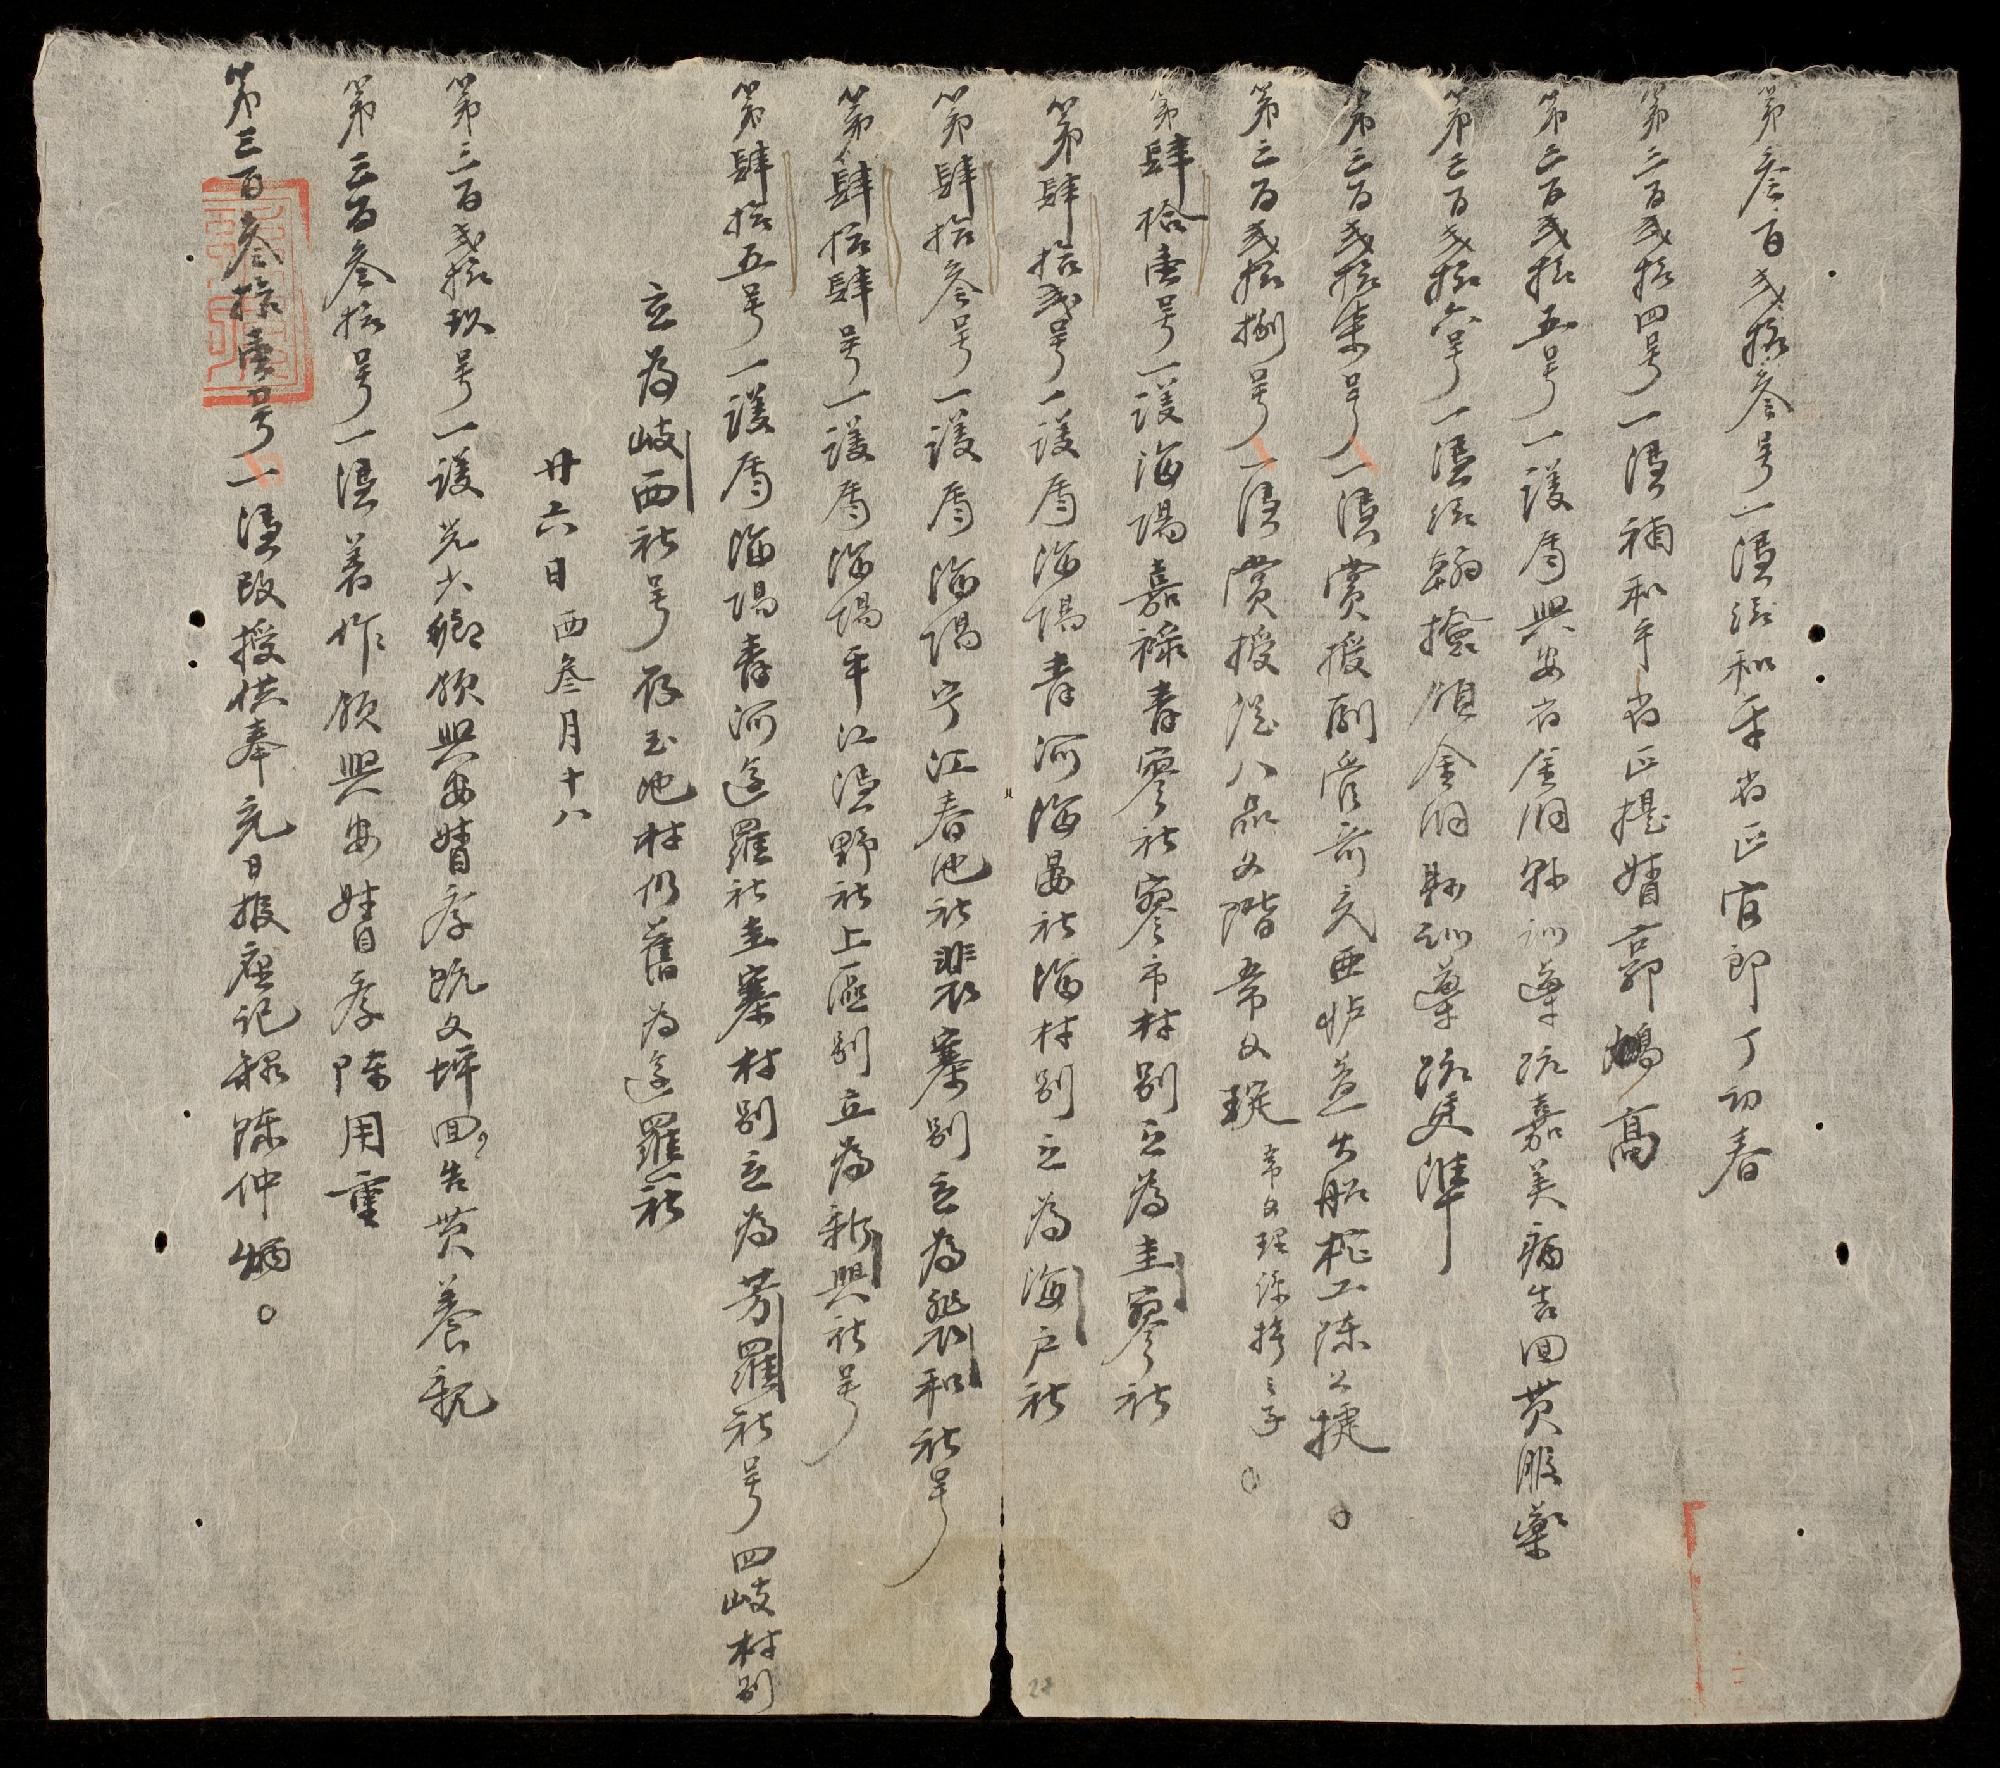 第叁百弍拾叁号一憑給和平省正官郎丁功春
第三百弍拾四号一憑補和平省正提婧郭鴻高
第三百弍拾五号一護為興安省金洞縣訓導阮嘉美病告回貫服藥
第三百弍拾六号一憑給翰撿領金洞縣訓導阮廷準
第三百弍拾柒号一憑賞授副管奇充西蒞火船柁工陳公捷。
第三百弍拾捌号一憑賞授從八品文階常文珽 常文理孫
第肆拾壹号一護海陽嘉祿青寥社寥市村別立為圭寥社
第肆拾弍号一護為海陽青河海晏社海村別立為海户社
第肆拾叁号一護為海陽宁江春池社裴寨別立為裴和社号
第肆拾肆号一護為海陽平江憑野社上區別立為新興社号
第肆拾五号一護為海陽青河邏羅社圭寨村別立為芳羅社号四岐村別
立為岐西社号存玉池村仍舊為邏羅社
廿六日 西叁月十八
第三百弍拾玖号一護光少鄉領興安督学阮文坪回告貫養親
第三百叁拾号一憑著作領興安督学陳用重
第三百叁拾壹号一憑改授供奉充日報座記録陳仲炳。